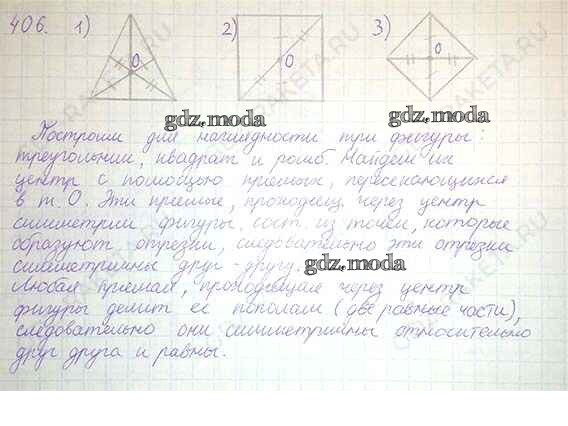 406. 1) 2) 3)
O O O
gdz.moda gdz.moda
Построим для наглядности три фигуры:
треугольник, квадрат и ромб. Найдем их
центр с помощью прямых, пересекающихся
в т. О. Эти прямые, проходящ. через центр
симметрии фигуры, сост. из точек, которые
образуют отрезки, следовательно эти отрезки
симметричны друг-другу.
gdz.moda
Любая прямая, проходящая через центр
фигуры делит её пополам (две равные части),
следовательно они симметричны относительно
друг друга и равны.